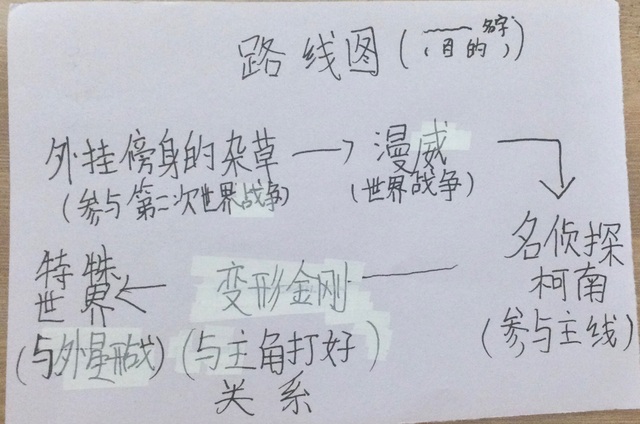 路线图(﹏﹏名字
(目的))
外挂傍身的杂草→漫威
(参与第二次世界战争)(世界战争)
名侦探
柯南
(参与主线)
特殊
世界←变形金刚—
(与外星形战)(与主角打好
关系